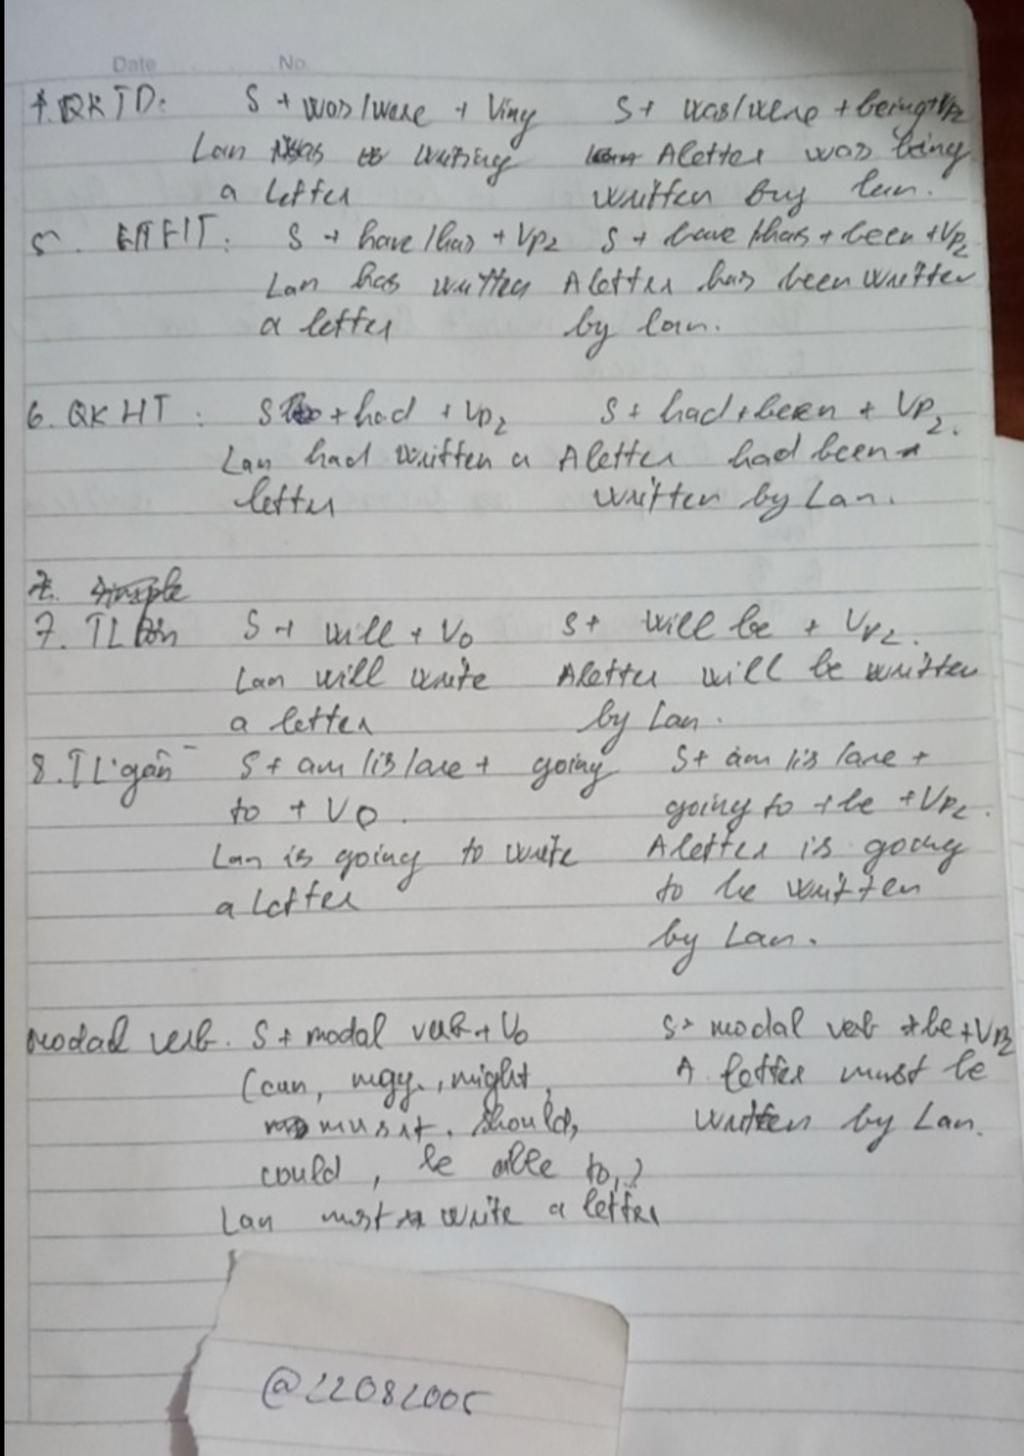 Date No.
4. QKTD: S + was/were + Ving S + was/were + being + Vp2
Lan was writing A letter was being
a letter written by lan.
5. HTHT: S + have/has + Vp2 S + have/has + been + Vp2
Lan has written A letter has been written
a letter by lan.
6. QKHT: S + had + Vp2 S + had + been + Vp2.
Lan had written a A letter had been
letter written by Lan.
7. Simple
7. TL đơn S + will + Vo S + will be + Vp2.
Lan will write A letter will be written
a letter by Lan.
8. TL gần S + am/is/are + going S + am/is/are +
to + Vo. going to + be + Vp2.
Lan is going to write A letter is going
a letter to be written
by Lan.
Modal verb. S + modal verb + Vo S + modal verb + be + Vp2
(can, may, might, A letter must be
must, should, written by Lan.
could, be able to,)
Lan must write a letter
@22082005